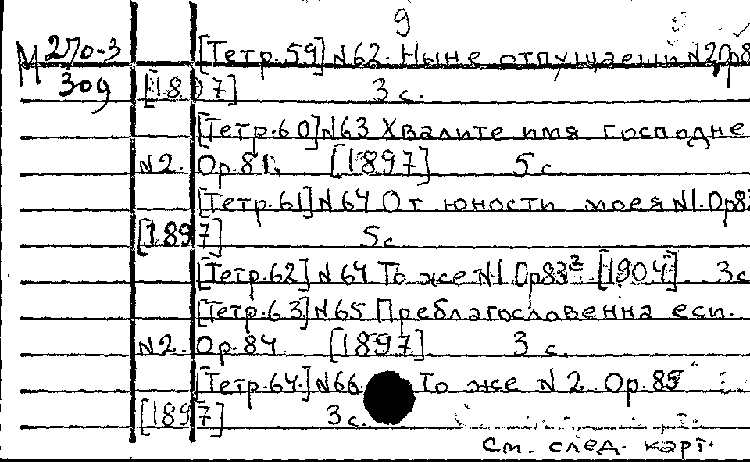 9
М 270-3 [Тетр.59] N62. Ныне отпущаеши N2, Ор8
309 [1897] 3 с.
[Тетр.60] N63 Хвалите имя господне
N2. Ор.81. [1897] 5 с
[Тетр.61] N64 От юности моея N1. Ор83
[1897] 5с
[Тетр.62] N64 То же N1. Ор83² [1904] 3с
[Тетр.63] N65 Преблагословенна еси.
N2. Ор.84 [1897] 3 с.
[Тетр.64.] N66 То же N2. Ор.85
[1897] 3с.
См. след. карт.